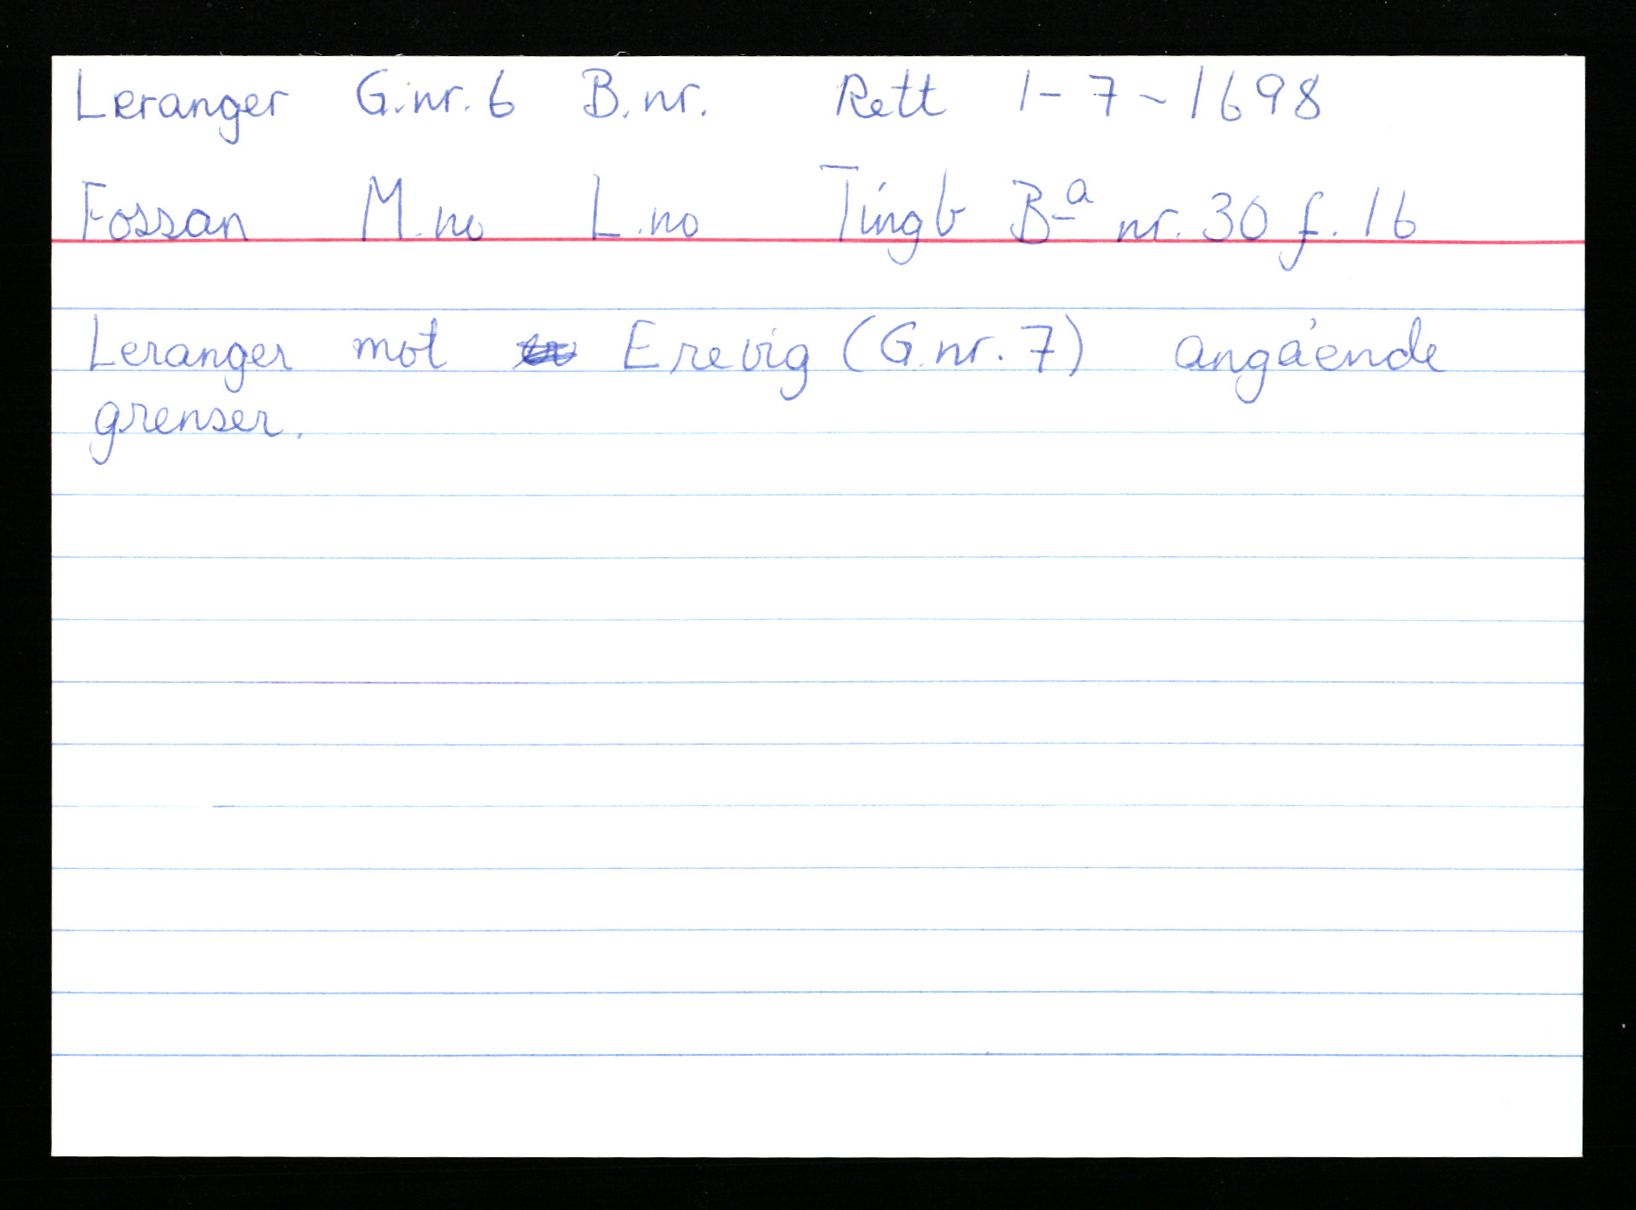 Leranger G.nr. 6 B.nr. Rett 1-7-1698
Fossan M.no L.no Tingb B-a nr. 30 f. 16
Leranger mot Erevig (G.nr. 7) angående
grenser.